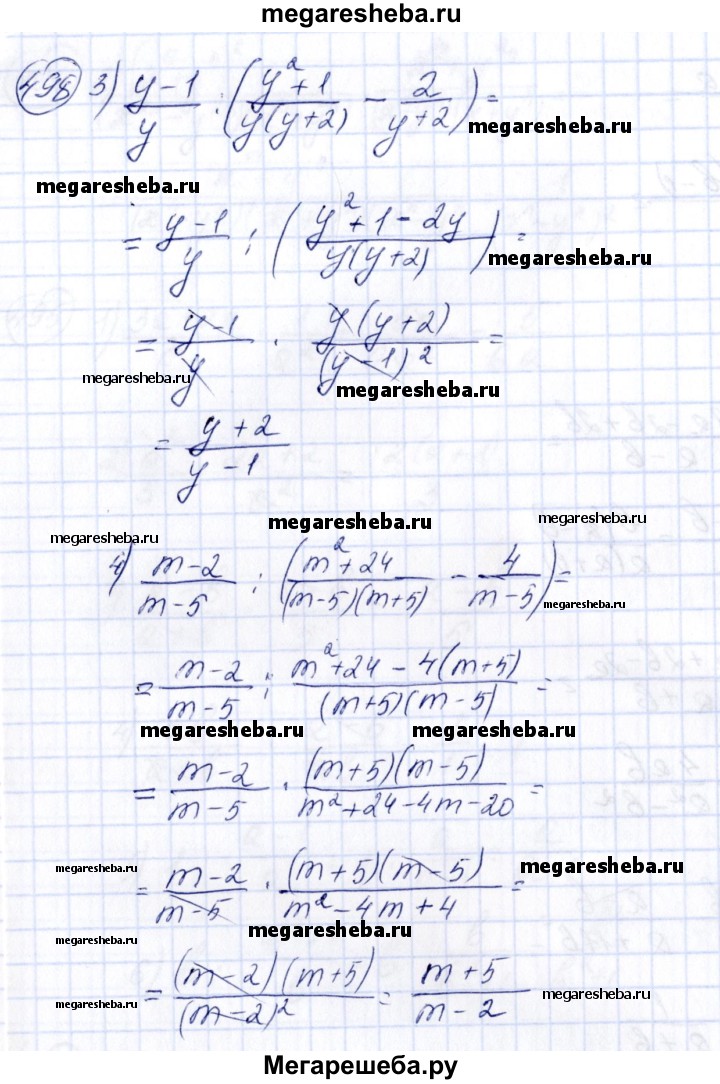 megaresheba.ru
498 3) (y-1)/y : ((y²+1)/(y(y+2)) - 2/(y+2)) =
megaresheba.ru
megaresheba.ru
= (y-1)/y : ((y²+1-2y)/(y(y+2))) =
megaresheba.ru
= (y-1)/y · (y(y+2))/((y-1)²) =
megaresheba.ru
megaresheba.ru
= (y+2)/(y-1)
megaresheba.ru
megaresheba.ru
megaresheba.ru
4) (m-2)/(m-5) : ((m²+24)/((m-5)(m+5)) - 4/(m-5)) =
megaresheba.ru
= (m-2)/(m-5) : (m²+24-4(m+5))/((m+5)(m-5)) =
megaresheba.ru
megaresheba.ru
= (m-2)/(m-5) · ((m+5)(m-5))/(m²+24-4m-20) =
megaresheba.ru
megaresheba.ru
= (m-2)/(m-5) · ((m+5)(m-5))/(m²-4m+4) =
megaresheba.ru
megaresheba.ru
= ((m-2)(m+5))/((m-2)²) = (m+5)/(m-2)
megaresheba.ru
megaresheba.ru
Мегарешеба.ру